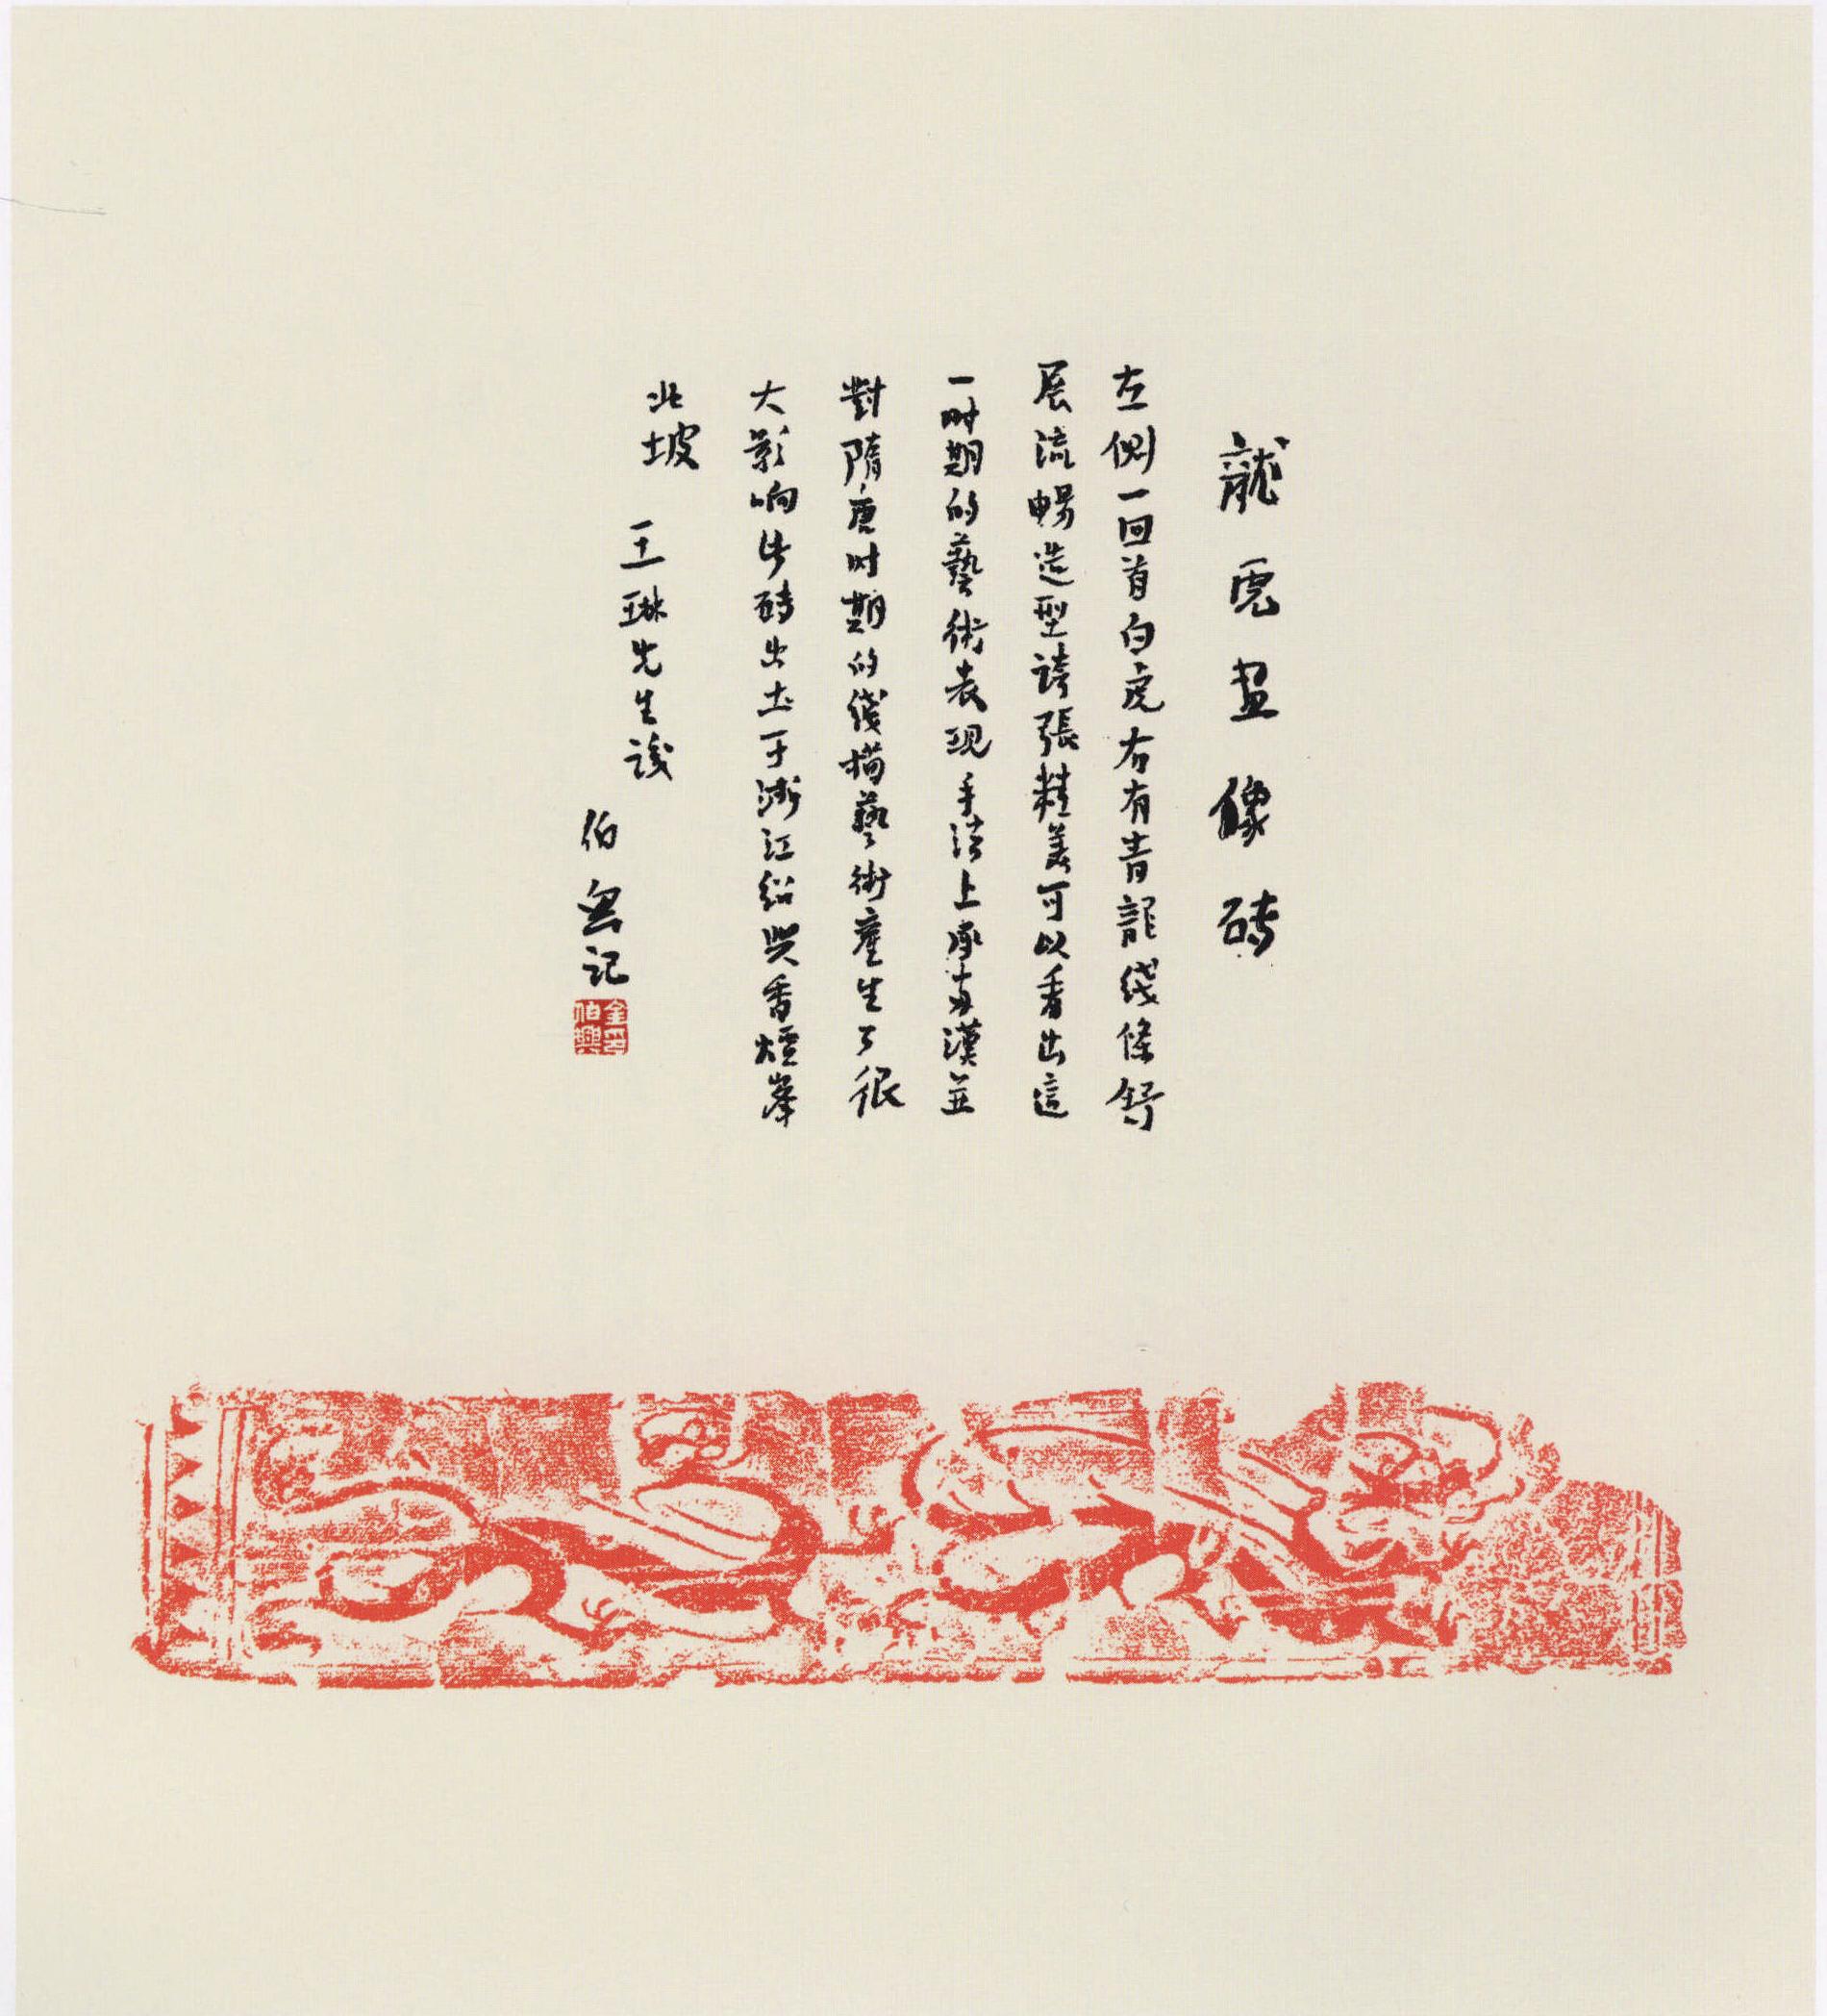 龍虎畫像磚
左側一回首白虎右有青龍綫條舒
展流暢造型誇張精美可以看出這
一时期的藝術表現手法上承东漢並
對隋唐时期的綫描藝術產生了很
大影响此磚出土于浙江紹興香爐峯
北坡 王琳先生識
伯興記
金氏
伯興